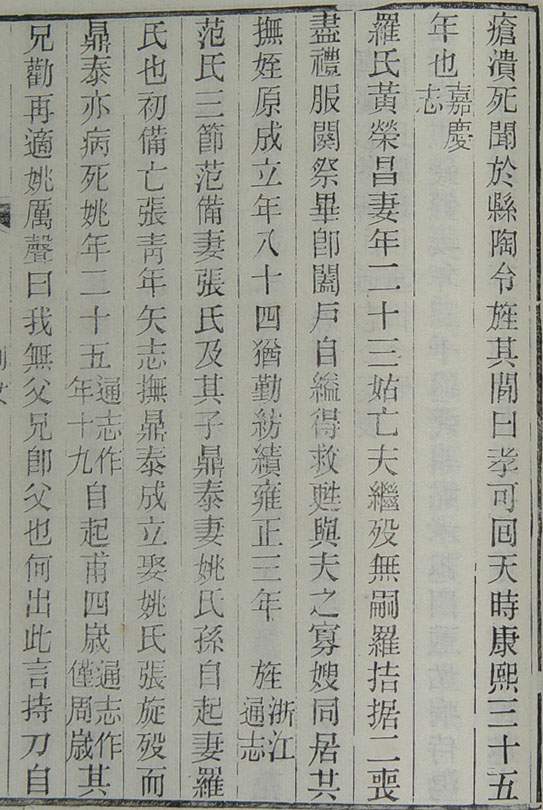 瘡潰死聞於縣陶令旌其閭曰孝可回天時康熙三十五
年也嘉慶志
羅氏黃榮昌妻年二十三姑亡夫繼歿無嗣羅拮据二喪
盡禮服闋祭畢卽闔戶自縊得救甦與夫之寡嫂同居共
撫姪原成立年八十四猶勤紡績雍正三年 旌浙江通志
范氏三節范備妻張氏及其子鼎泰妻姚氏孫自起妻羅
氏也初備亡張靑年矢志撫鼎泰成立娶姚氏張旋歿而
鼎泰亦病死姚年二十五通志作年十九自起甫四歲通志作僅周歲其
兄勸再適姚厲聲曰我無父兄卽父也何出此言持刀自